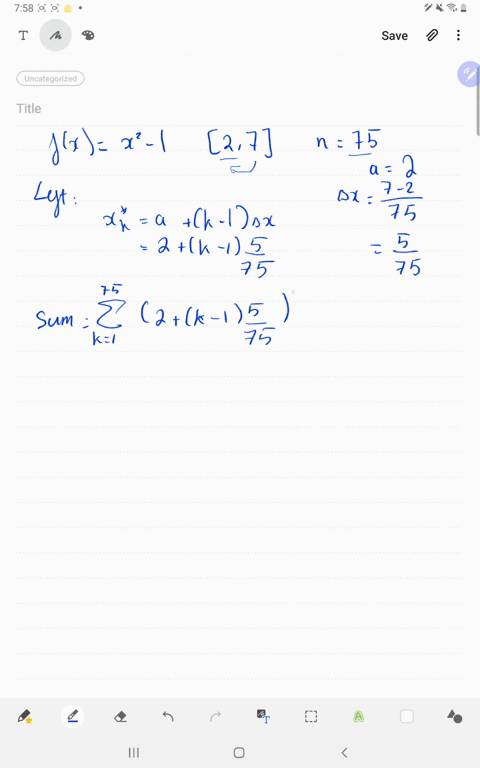 7:58
T Save
Uncategorized
Title
f(x) = x² - 1 [2, 7] n = 75
a = 2
Left: Δx = 7-2/75
x*ₖ = a + (k-1)Δx
= 2 + (k-1) 5/75 = 5/75
Sum = 75∑k=1 (2 + (k-1) 5/75)